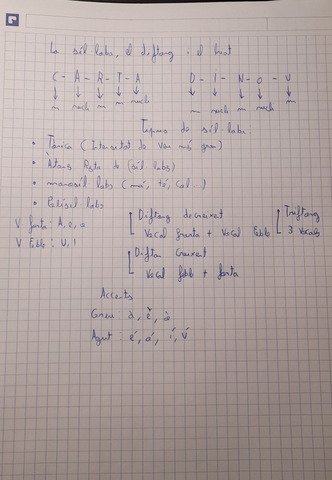 La síl labs, el diftong i el hiat
C - A - R - T - A D - I - N - O - U
m nucli m m nucli m nucli m nucli m
Tipus de síl labs
• Tònica (Intensitat de veu més gran)
• Àtons Resta de (síl labs)
• monosíl labs (més, té, cal...)
• Polisíl labs
V forts: A, e, o
V feble: U, I
Diftong decreixent
Vocal fronta + Vocal Feble
Triftong
3 Vocals
Difton Creixent
Vocal feble + forta
Accents
Greu: à, è, ò
Agut: é, ó, í, ú